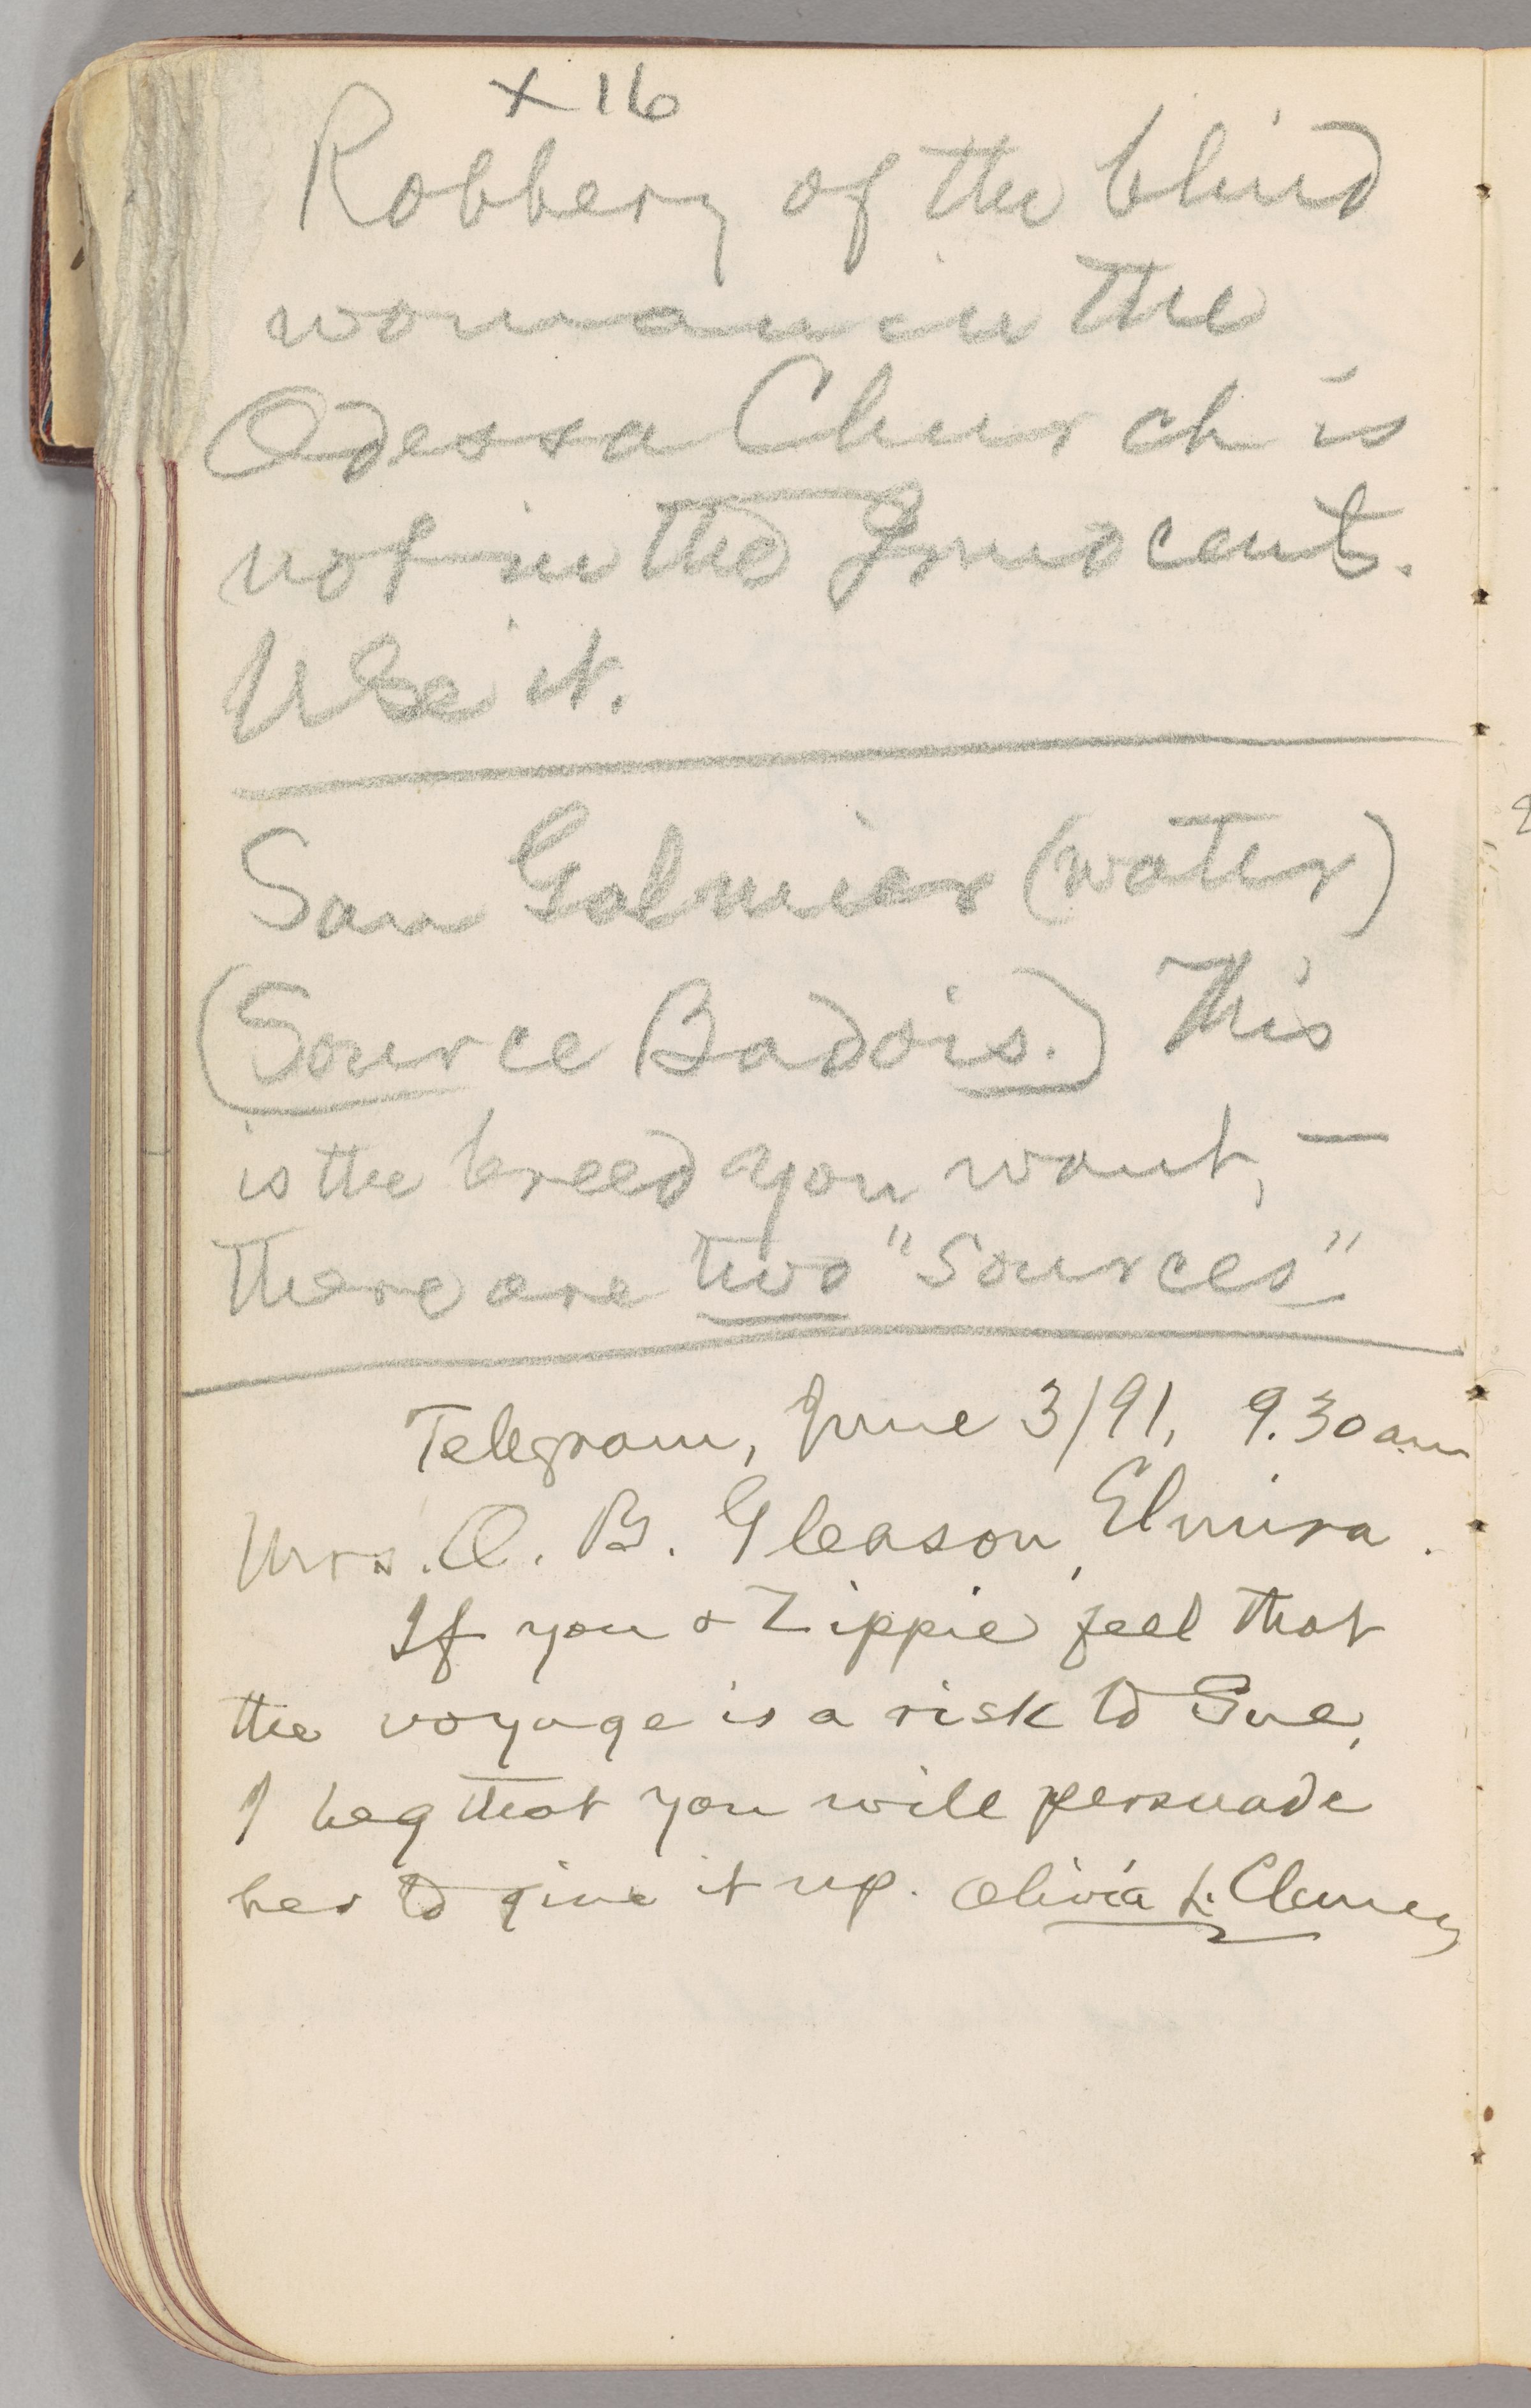 x 16
Robbery of the blind
woman in the
Odessa Church is
not in the Innocents.
Use it.
San Galmier (water)
(Source Badois.) This
is the breed you want, —
there are two "Sources"
Telegram, June 3/91, 9.30 am
Mrs. O. B. Gleason, Elmira.
If you & Zippie feel that
the voyage is a risk to Sue,
I beg that you will persuade
her to give it up. Olivia L. Clemens